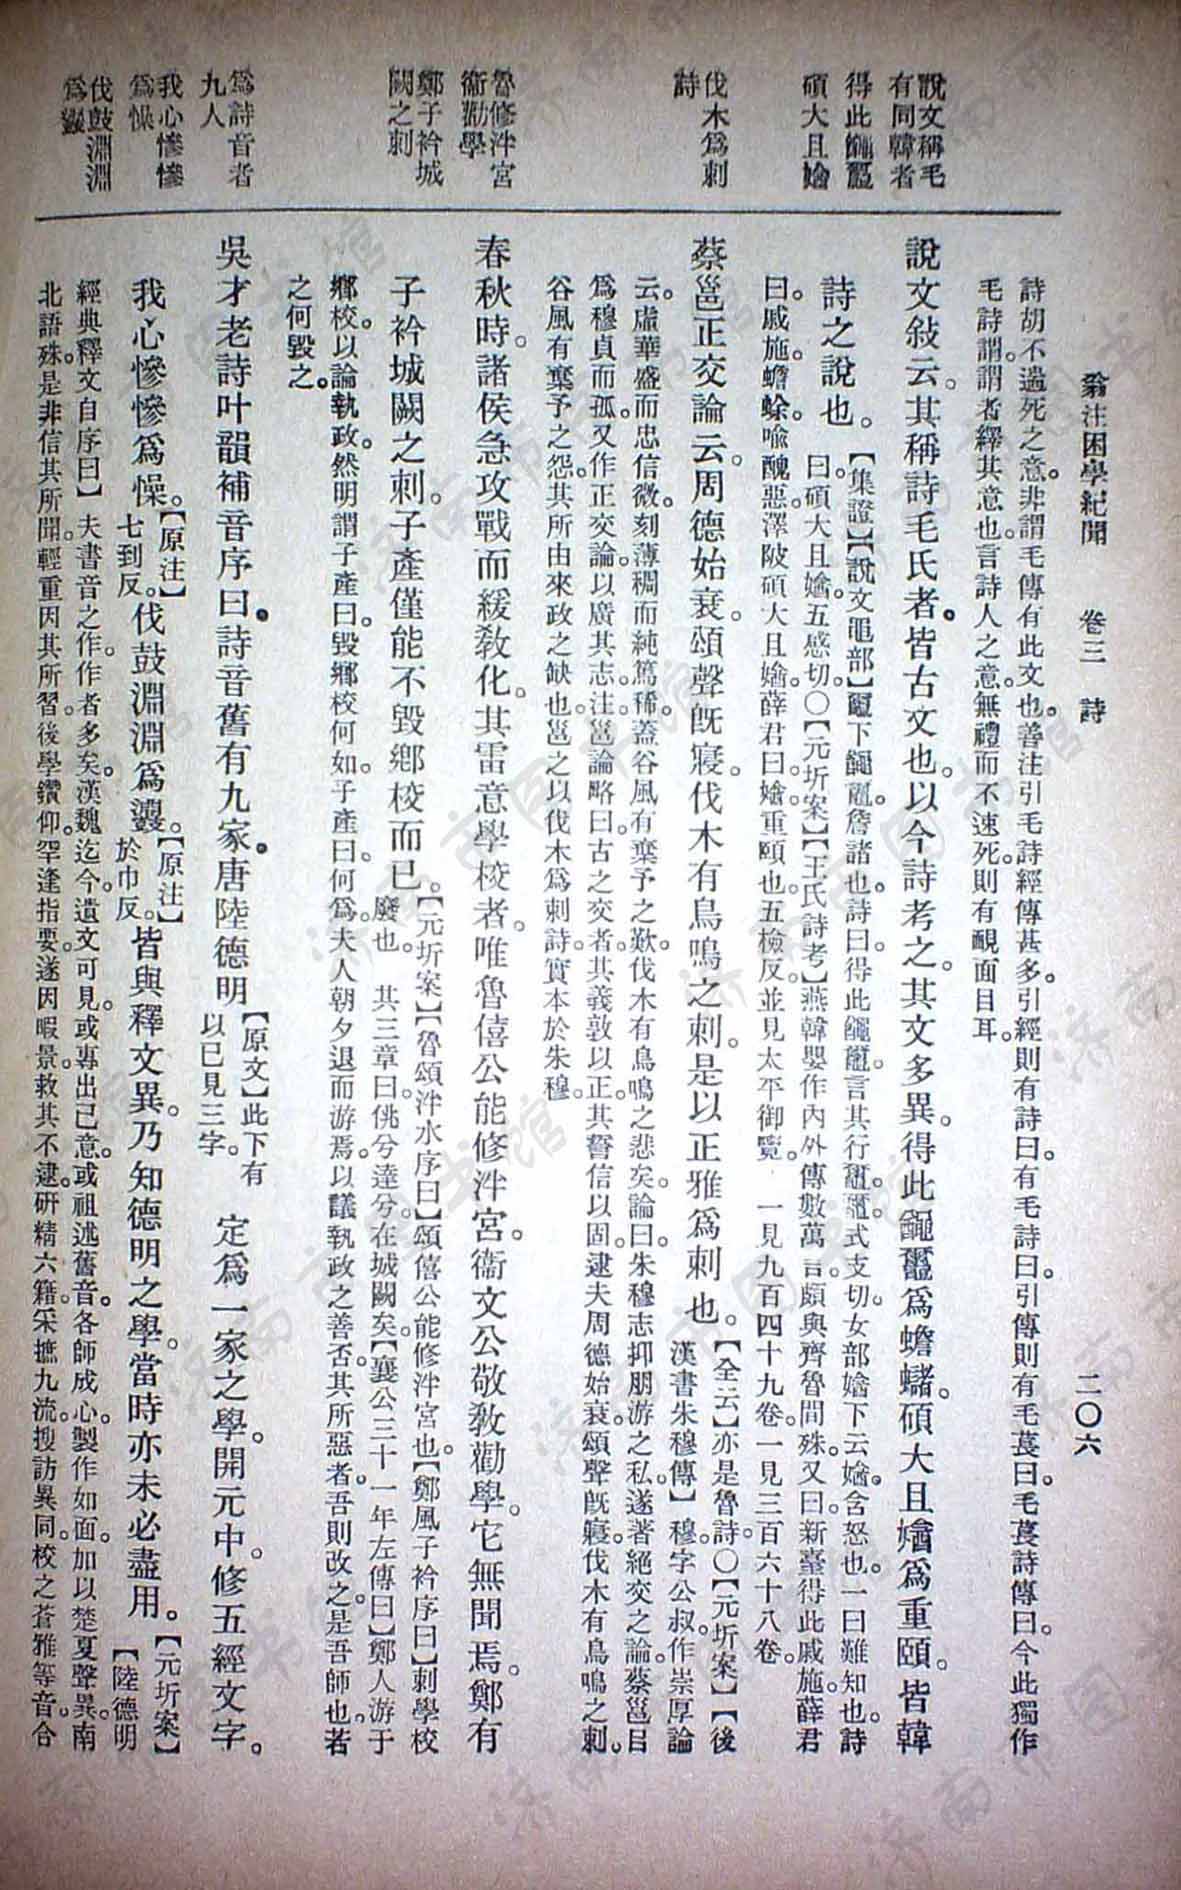 翁注困學紀聞 卷三 詩 二〇六
說文稱毛
有同韓者
得此𪓰𪓿
碩大且㜝
伐木爲刺
詩
魯修泮宮
衞勸學
鄭子衿城
闕之刺
爲詩音者
九人
我心慘慘
爲懆
伐鼓淵淵
爲鼝
詩胡不遄死之意。非謂毛傳有此文也。善注引毛詩經傳甚多。引經則有詩曰。有毛詩曰。引傳則有毛萇曰。毛萇詩傳曰。今此獨作
毛詩謂。謂者繹其意也。言詩人之意。無禮而不速死。則有靦面目耳。
說文敍云。其稱詩毛氏者。皆古文也。以今詩考之。其文多異。得此爲蟾蠩。碩大且㜝爲重頤。皆韓
詩之說也。【集證】【說文黽部】下詹諸也。詩曰。得此言其行式支切。女部㜝下云。㜝含怒也。一曰難知也。詩
曰。碩大且㜝。五感切。〇【元圻案】【王氏詩考】燕韓嬰作內外傳數萬言。頗與齊魯間殊。又曰。新臺得此戚施。薛君
曰。戚施。蟾蜍。喩醜惡。澤陂碩大且㜝。薛君曰。㜝。重頤也。五檢反。並見太平御覽。一見九百四十九卷。一見三百六十八卷。
蔡邕正交論云。周德始衰。頌聲旣寢。伐木有鳥鳴之刺。是以正雅爲刺也。【全云】亦是魯詩。〇【元圻案】【後
漢書朱穆傳】穆字公叔。作崇厚論
云。虛華盛而忠信微。刻薄稠而純篤稀。蓋谷風有棄予之歎。伐木有鳥鳴之悲矣。論曰。朱穆志抑朋游之私。遂著絕交之論。蔡邕㠯
爲穆貞而孤。又作正交論。以廣其志。注。邕論略曰。古之交者。其義敦以正。其誓信以固。逮夫周德始衰。頌聲旣寢。伐木有鳥鳴之刺。
谷風有棄予之怨。其所由來。政之缺也。邕之以伐木爲刺詩。實本於朱穆。
春秋時。諸侯急攻戰而緩敎化。其畱意學校者。唯魯僖公能修泮宮。衞文公敬敎勸學。它無聞焉。鄭有
子衿城闕之刺。子產僅能不毀鄕校而已。【元圻案】【魯頌泮水序曰】頌僖公能修泮宮也。【鄭風子衿序曰】刺學校
廢也。 其三章曰。佻兮達兮。在城闕矣。【襄公三十一年左傳曰】鄭人游于
鄕校。以論執政。然明謂子產曰。毀鄕校何如。子產曰。何爲。夫人朝夕退而游焉。以議執政之善否。其所惡者。吾則改之。是吾師也。若
之何毀之。
吳才老詩叶韻補音序曰。詩音舊有九家。唐陸德明【原文】此下有
以已見三字。 定爲一家之學。開元中。修五經文字。
我心慘慘爲懆。【原注】
七到反。伐鼓淵淵爲鼝。【原注】
於巾反。皆與釋文異。乃知德明之學。當時亦未必盡用。【元圻案】
【陸德明
經典釋文自序曰】夫書音之作。作者多矣。漢魏迄今。遺文可見。或專出已意。或祖述舊音。各師成心。製作如面。加以楚夏聲異。南
北語殊。是非信其所聞。輕重因其所習。後學鑽仰。罕逢指要。遂因暇景。救其不逮。研精六籍。采摭九流。搜訪異同。校之蒼雅等音。合